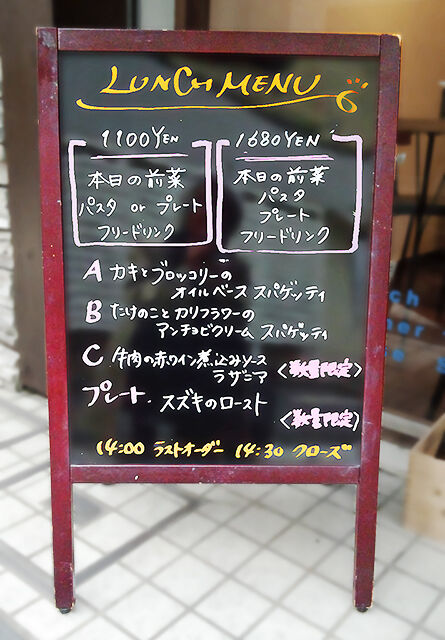 LUNCH MENU
1100YEN
本日の前菜
パスタ or プレート
フリードリンク
1680YEN
本日の前菜
パスタ
プレート
フリードリンク
A カキとブロッコリーの
オイルベース スパゲッティ
B たけのことカリフラワーの
アンチョビクリーム スパゲッティ
C 牛肉の赤ワイン煮込みソース
ラザニア <数量限定>
プレート・スズキのロースト
<数量限定>
14:00 ラストオーダー 14:30 クローズ